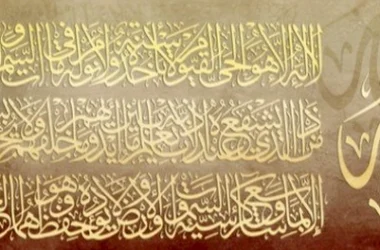 لا اله الا هو الحى القيوم لا تأخذه سنة ولا نوم له ما فى السموات و
من ذا الذى يشفع عنده الا باذنه يعلم ما بين ايديهم وما خلفهم ولا
الا بما شاء وسع كرسيه السموات والارض ولا يؤده حفظهما وهو